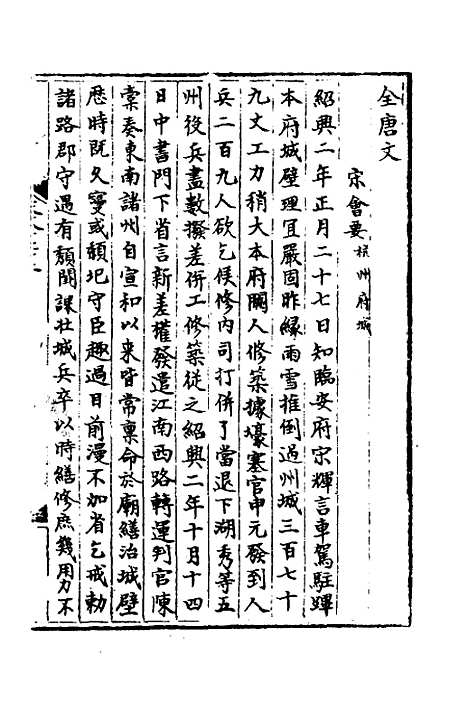 全唐文
宋會要杭州府城
紹興二年正月二十七日知臨安府宋輝言車駕駐蹕
本府城壁理宜嚴固昨緣雨雪推倒過州城三百七十
九丈工力稍大本府闕人修築據壕寨官申元發到人
兵二百九人欲乞候修內司打併了當退下湖秀等五
州役兵盡數撥差併工修築從之紹興二年十月十四
日中書門下省言新差權發遣江南西路轉運判官陳
棠奏東南諸州自宣和以來皆常稟命於廟繕治城壁
歷時既久寖或頹圮守臣趣過目前漫不加省乞戒勅
諸路郡守遇有頹闕課壯城兵卒以時繕修庶幾用力不